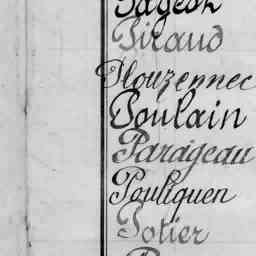 Pagest
Piraud
Plouzennec
Poulain
Parageau
Pouliquen
Potier